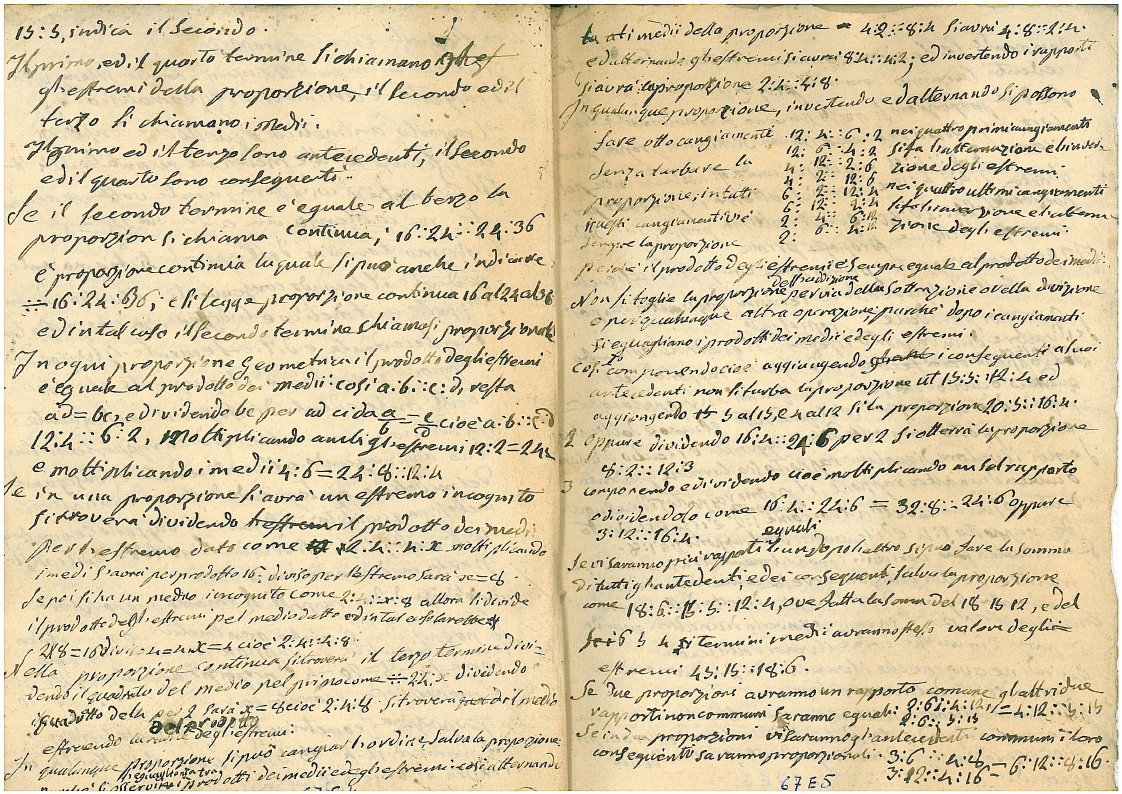 15:5, indica il Secondo.
Il primo, ed il quarto termine Si chiamano
gli estremi della proporzione, il Secondo ed il
terzo Si chiamano i Medii.
Il primo ed il terzo sono antecedenti, il Secondo
ed il quarto sono conseguenti.
Se il secondo termine è eguale al terzo la
proporzion Si chiama Continua; 16:24::24:36
è proporzione continua la quale Si può anche indicare
÷16:24:36; e si legge proporzione continua 16 al 24 al 36
ed in tal caso il Secondo termine chiamasi proporzionale
In ogni proporzione Geometrica il prodotto degli estremi
è eguale al prodotto dei medii: così a:b::c:d, resta
ad=bc, e dividendo bc per ad ci da a/b = c/d cioè a:b::c:d
12:4::6:2, Moltiplicando ambi gli estremi 12:2=24
e moltiplicando i medii 4:6=24
Se in una proporzione Si avrà un estremo incognito
Si troverà dividendo il prodotto dei medi
per l'estremo dato come 2:4::4:x moltiplicando
i medi S'avrà per prodotto 16: diviso per l'estremo Sarà x=8
Se poi si ha un medio incognito come 2:4::x:8 allora Si divide
il prodotto degli estremi pel medio datto ed in tal caso
2:8=16 diviso 4=4 x=4 cioè 2:4::4:8
Nella proporzione Continua Si troverà il terzo termine divi-
dendo il quadrato del medio pel primo come ÷2:4:x dividendo
per 2 Sarà x=8 cioè 2:4:8 Si troverà il medio
estraendo la radice degli estremi.
In qualunque proporzione Si può cangiar l'ordine, Salva la proporzione
i prodotti dei medii e degli estremi: così alternando
i medii della proporzione 4:2::8:4 Si avrà 4:8::2:4.
ed alternando gli estremi Si avrà 8:4::4:2; ed invertendo i rapporti
Si avrà la proporzione 2:4::4:8.
In qualunque proporzione, invertendo ed alternando Si possono
fare otto cangiamenti 12:4::6:2 nei quattro primi cangiamenti
senza turbare la 12:6::4:2 Si fa l'alternazione e l'inver-
proporzione, in tutti 4:12::2:6 zione degli estremi,
4:2::12:6 nei quattro ultimi cangiamenti
questi cangiamenti vi è 6:2::12:4
6:12::2:4
2:4::6:12 zione degli estremi.
sempre la proporzione 2:6::4:12
perchè il prodotto degli estremi è Sempre eguale al prodotto dei medi.
dell'addizione
Non Si toglie la proporzione per via della Sottrazione o della divizione
o per qualunque altra operazione, purchè dopo i cangiamenti
Si eguagliano i prodotti dei medii e degli estremi.
Così componendo cioè aggiungendo i conseguenti a' suoi
antecedenti non Si turba la proporzione ut 15:5::12:4 ed
aggiongendo 5 al 15, e 4 al 12 Si ha proporzione 20:5::16:4.
2 Oppure dividendo 16:4::24:6 per 2 Si otterrà la proporzione
8:2::12:3
3 componendo e dividendo cioè moltiplicando un Sol rapporto
o dividendolo come 16:4::24:6 = 32:8::24:6 oppure
3:12::16:4.
eguali
Se vi Saranno più rapporti l'un dopo l'altro Si può fare la Somma
di tutti gli antedenti, e dei conseguenti, Salva la proporzione
come 18:6::15:5::12:4, ove fatta la Soma del 18 15 12, e del
6 5 4 Si termini medii avranno stesso valore degli=
estremi 45:15::18:6.
Se due proporzioni avranno un rapporto comune gli altri due
rapporti non communi Saranno eguali: 2:6::4:12 = 4:12::5:15
2:6::5:15
Se in due proporzioni vi Saranno gli antecedenti communi i loro
conseguenti Saranno proporzionali. 3:6::4:8 = 6:12::8:16.
3:12::4:16
67E5